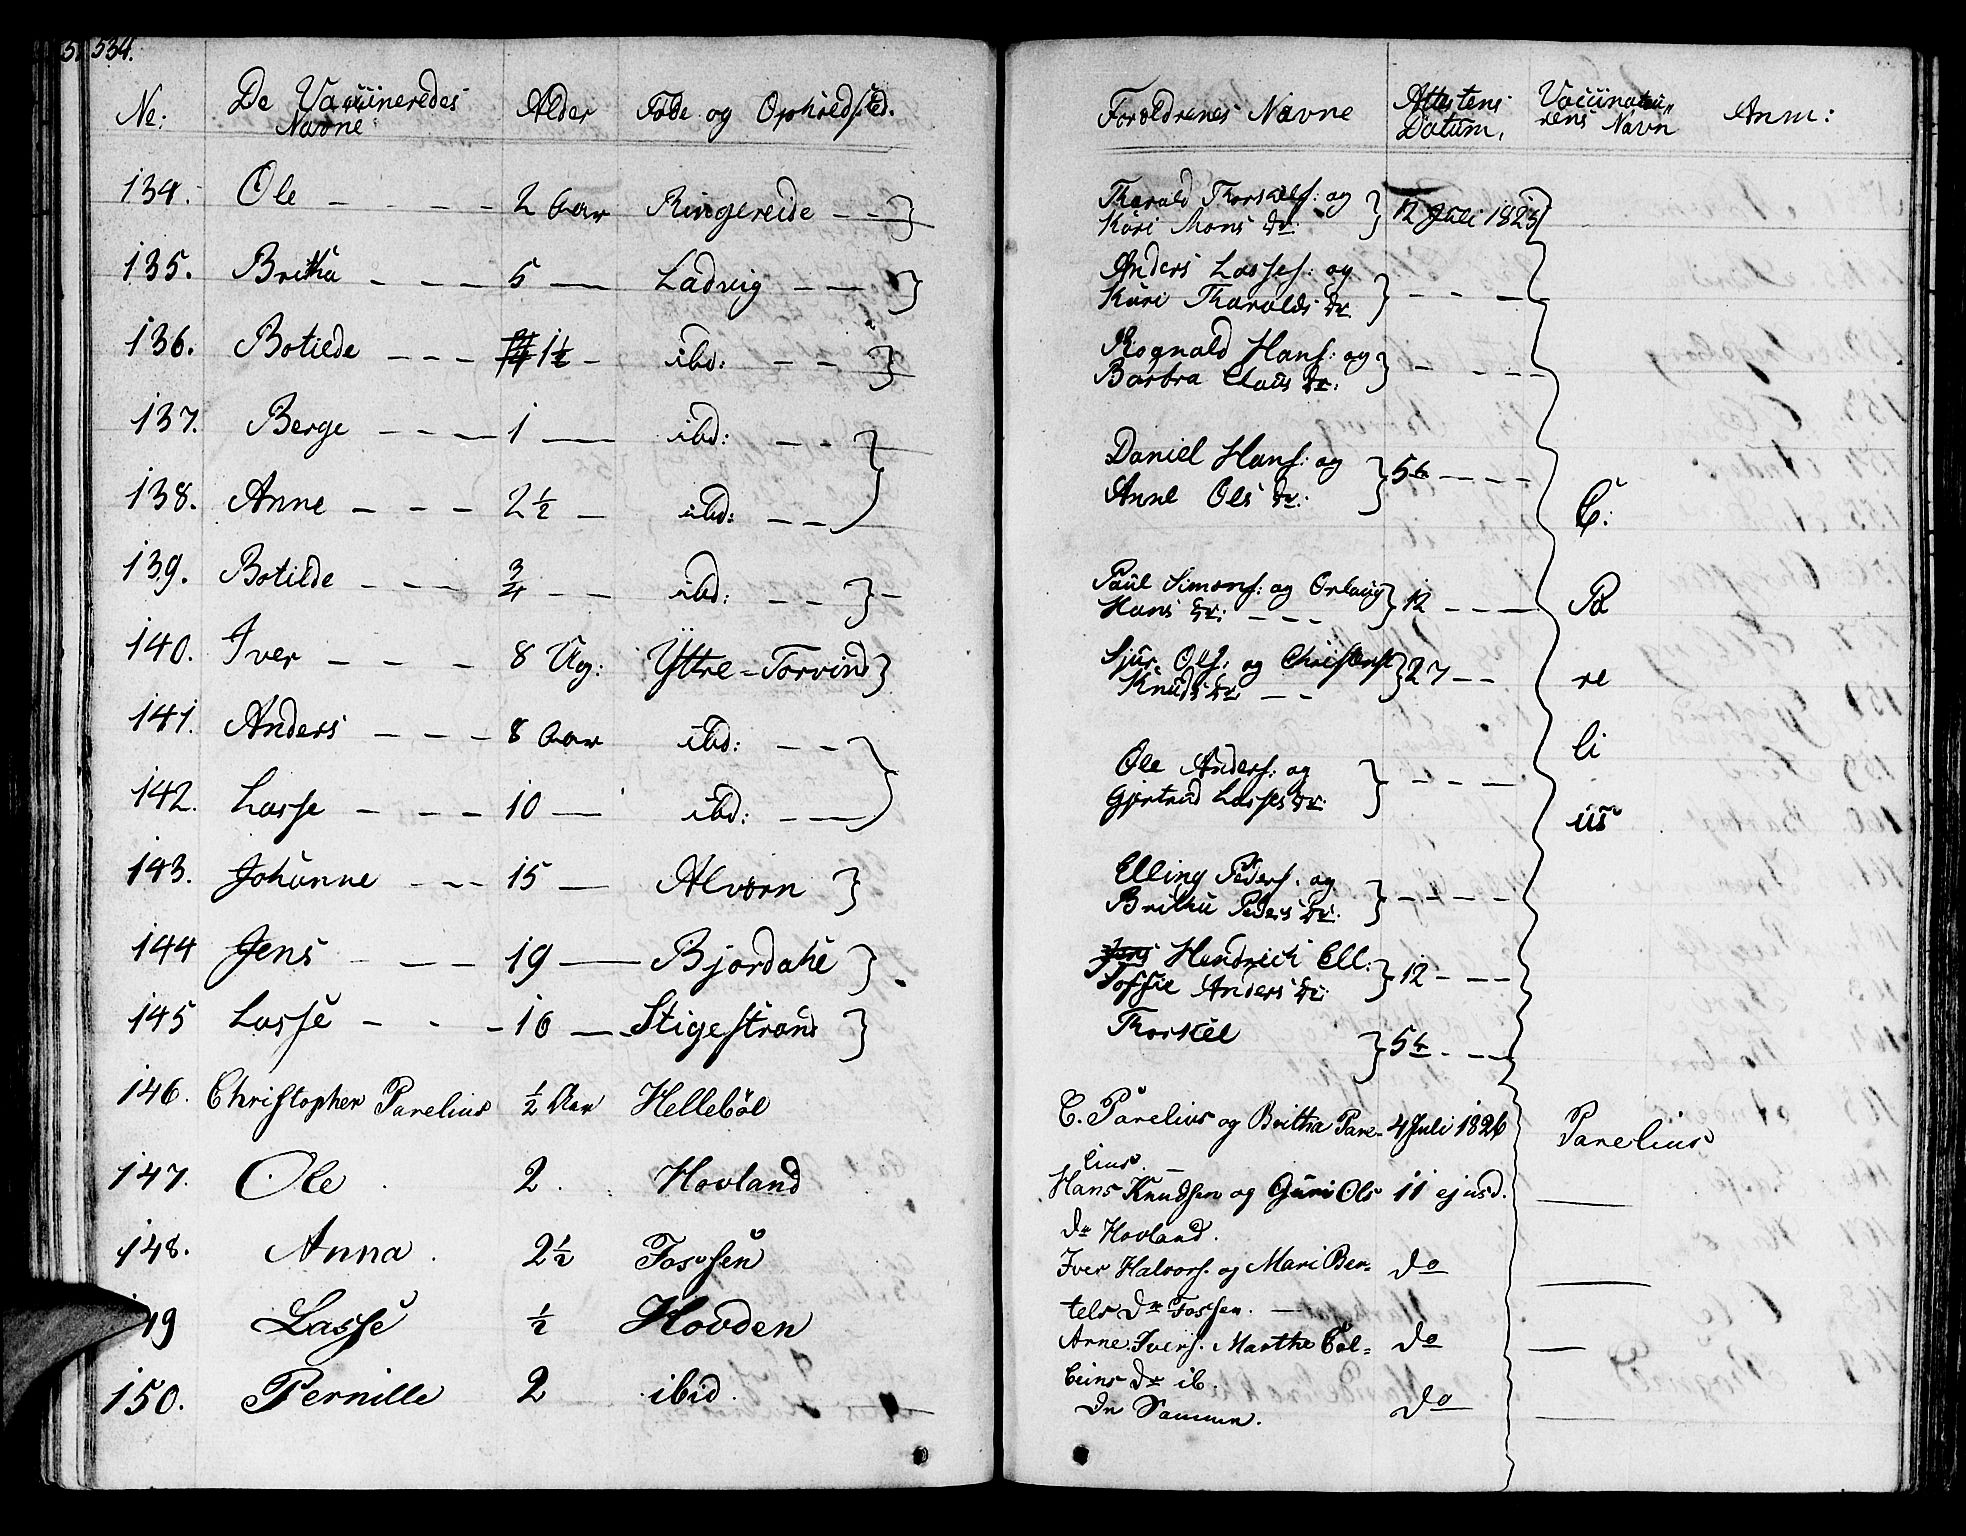 534.
No: De Vaccineredes Navne Alder Føde og Opholdsted. Forældrenes Navne Attestens Datum, Vaccinateu- rens Navn Anm:
134. Ole - - - - 2 Aar Ringereide - - } Tharald Thorkels: og
Kari Mons dr. } 12 Juli 1823
135. Britha - - - 5 — Ladvig - - } Anders Lasses: og
Kari Tharalds dr } - - -
136. Botilde - - - 1½ - ibd: - - } Rognald Hans: og
Barbra Claus dr: } - - - -
137. Berge - - - 1 — ibd: - - }
Daniel Hans: og
138. Anne - - - 2½ - ibd: - - } Anne Ols dr: } 5te - - - - C.
139. Botilde - - - ¾ - - ibd: - - } Paul Simons: og Orlaug
Hans dr: - - - } 12 - - - Pa
140. Iver - - - 8 Ug: Yttre-Torvind } Sjur Ols: og Christense
Knuds dr - - } 27 - - re
141. Anders - - - 8 Aar ibd: - - }
Ole Anders: og li
142. Lasse - - - 10 — ibd: - - } Gjertrud Lasses dr: } - - - - us
143. Johanne - - - 15 — Alværn } Elling Peders: og
Britha Peders dr: } - - - -
144 Jens - - - 19 — Bjordahl } Hendrich Ell:
Anders dr: } 12 - - -
145 Lasse - - - 16 — Stigestrand } Thorkel } 5te - - -
146. Christopher Parelius ½ Aar Hellebøl C. Parelius og Britha Pare- 4 Juli 1826 Parelius
lius. —
147. Ole 2 Hovland Hans Knudsen og Guri Ols 11 ejusd. —
dr Hovland.
148. Anna 2½ Fossen Iver Halvors. og Mari Ber- do —
tels dr Fossen. —
149 Lasse ½ Hovden Arne Ivers. Marthe Col- do —
beins dr ib.
150. Pernille 2 ibid. De Samme. do —